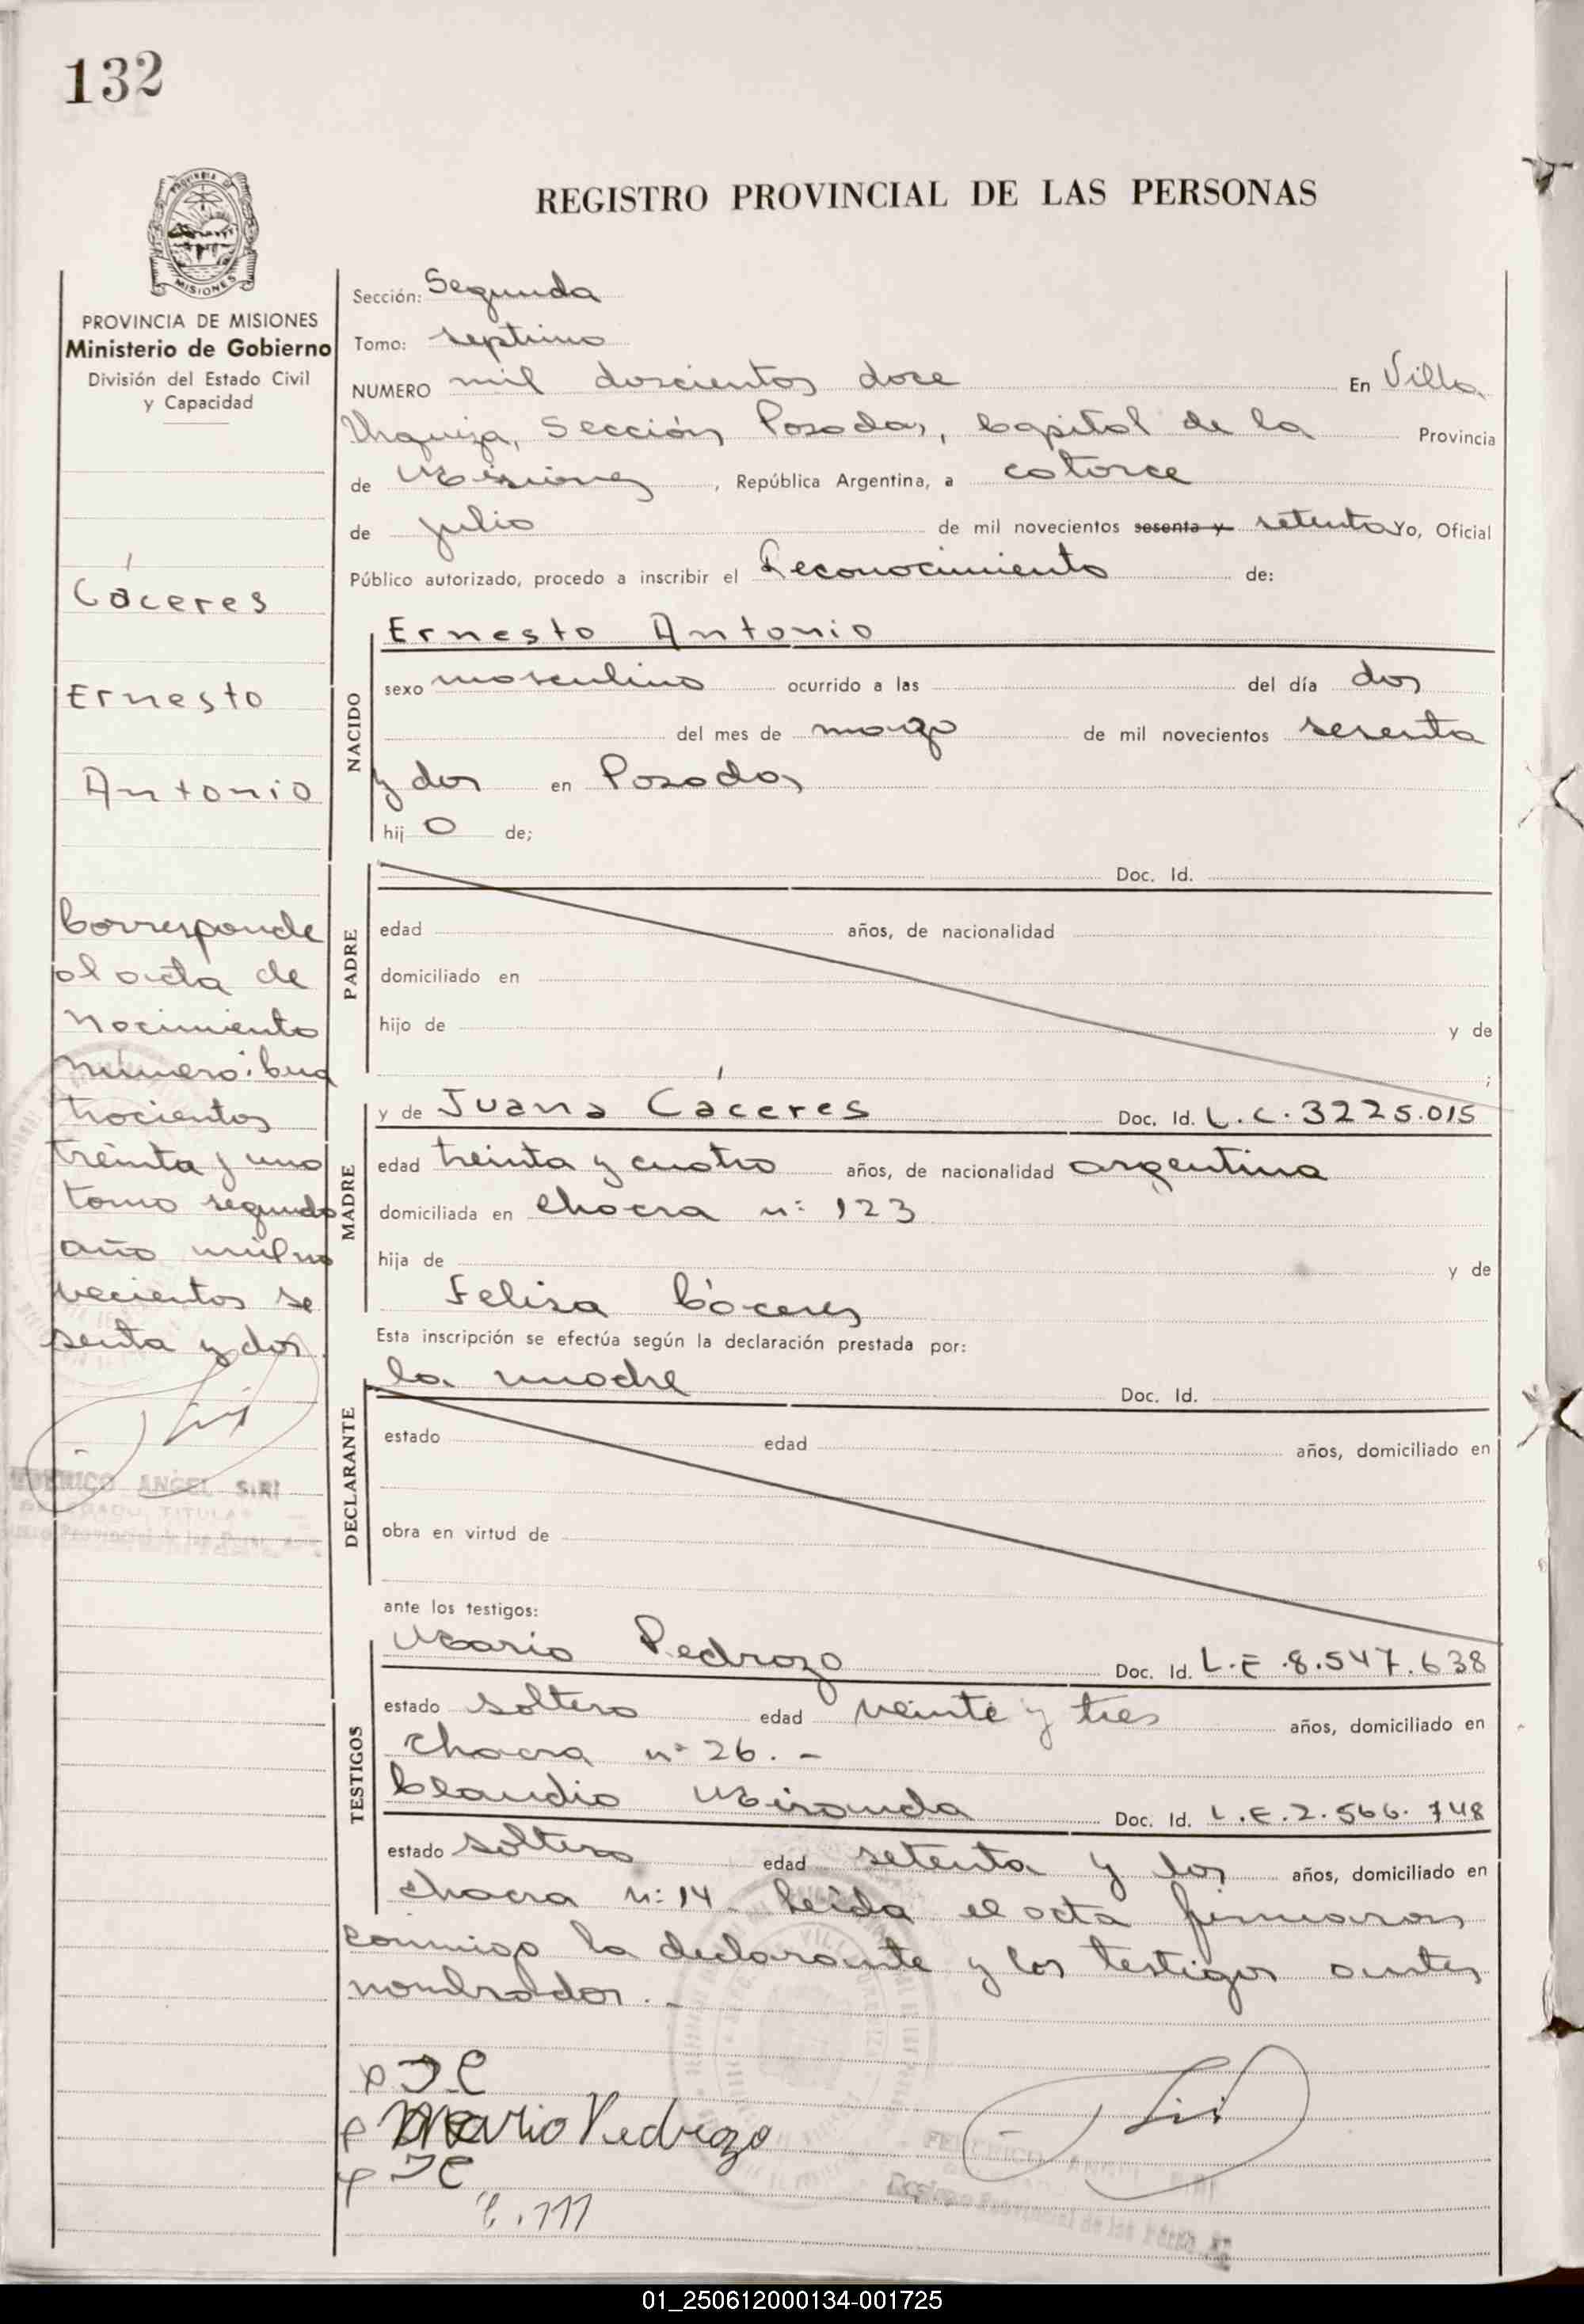 132
REGISTRO PROVINCIAL DE LAS PERSONAS
PROVINCIA DE
MISIONES
PROVINCIA DE MISIONES
Ministerio de Gobierno
División del Estado Civil
y Capacidad
Cáceres
Ernesto
Antonio
Corresponde
al acta de
Nacimiento
número: cua
trocientos
treinta y uno
tomo segundo
año mil no
vecientos se
senta y dos.
ANGEL SIRI
TITULAR
Sección: Segunda
Tomo: septimo
NUMERO mil doscientos doce En Villa
Urquiza, Sección Posadas, Capital de la Provincia
de Misiones, República Argentina, a catorce
de julio de mil novecientos sesenta y setenta Yo, Oficial
Público autorizado, procedo a inscribir el Reconocimiento de:
NACIDO
Ernesto Antonio
sexo masculino ocurrido a las del día dos
del mes de marzo de mil novecientos sesenta
y dos en Posadas
hij o de;
PADRE
Doc. Id.
edad años, de nacionalidad
domiciliado en
hijo de y de
;
MADRE
y de Juana Cáceres Doc. Id. L.C. 3225.015
edad treinta y cuatro años, de nacionalidad argentina
domiciliada en chacra n: 123
hija de y de
Felisa Cáceres
Esta inscripción se efectúa según la declaración prestada por:
DECLARANTE
la madre Doc. Id.
estado edad años, domiciliado en
obra en virtud de
ante los testigos:
TESTIGOS
Mario Pedrozo Doc. Id. L.E. 8.547.638
estado soltero edad veinte y tres años, domiciliado en
chacra nº 26. -
Claudio Miranda Doc. Id. L.E. 2.566.748
estado soltero edad setenta y dos años, domiciliado en
chacra n: 14 - Leida el acta firmaron
conmigo la declarante y los testigos antes
nombrados. -
J C
Mario Pedrozo
J C
01_250612000134-001725